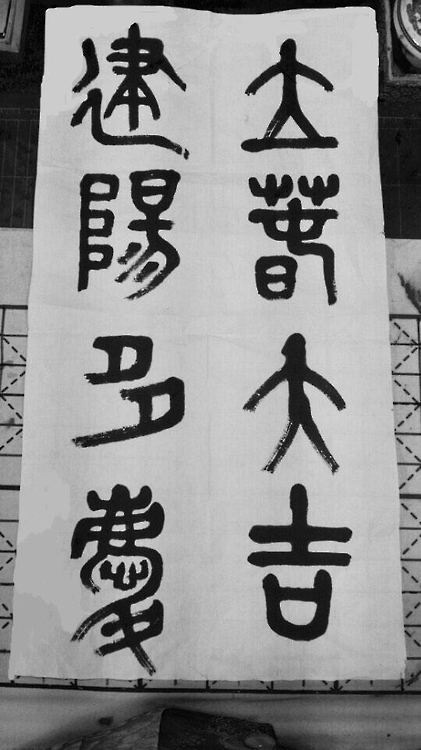 立萅大吉
建陽多慶